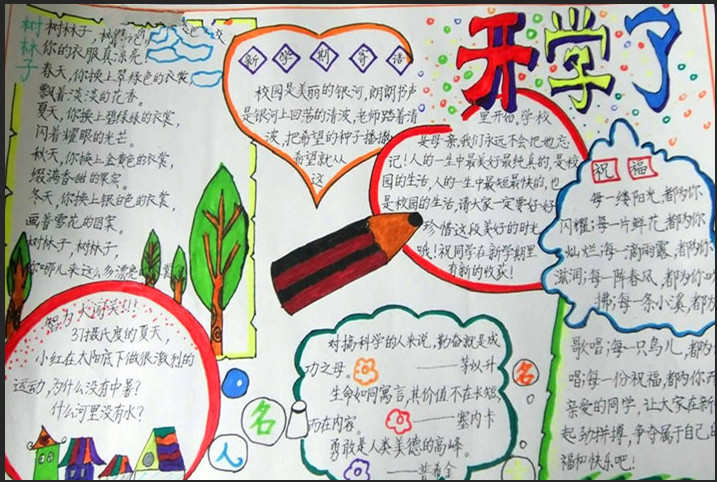 开学了
树林子
树林子，树林子，
你的衣服真漂亮
春天，你换上翠绿色的衣裳，
飘着淡淡的花香。
夏天，你换上碧绿绿的衣裳，
闪着耀眼的光芒。
秋天，你换上金黄色的衣裳，
缀满香甜的果实。
冬天，你换上银白色的衣裳，
画着雪花的图案。
树林子，树林子，
你哪儿来这么多漂亮
新学期寄语
校园是美丽的银河，朗朗书声
是银河上回荡的清波，老师踏着清
波，把希望的种子播撒
希望就从
这
里开始，学校
是母亲，我们永远不会把她忘
记！人的一生中最美好最纯真的，是校
园的生活，人的一生中最短最快的，也
是校园的生活，请大家一定要好好
珍惜这段美好的时光
哦！祝同学在新学期里
有新的收获！
祝福
每一缕阳光，都为你
闪耀；每一片鲜花，都为你
灿烂；每一滴雨露，都为你
滋润；每一阵春风，都为你吹
拂；每一条小溪，都为
歌唱；每一只鸟儿，都
唱；每一份祝福，都为你
亲爱的同学，让大家在新
起劲拼搏，争夺属于自己的
福和快乐吧！
智力大闯关！！！
37摄氏度的夏天，
小红在太阳底下做很激烈的
运动，为什么没有中暑？
什么河里没有水？
名人名
对搞科学的人来说，勤奋就是成
功之母。
——茅以升
生命如同寓言，其价值不在长短，
而在内容。
——塞内卡
勇敢是人类美德的高峰。
——普希金